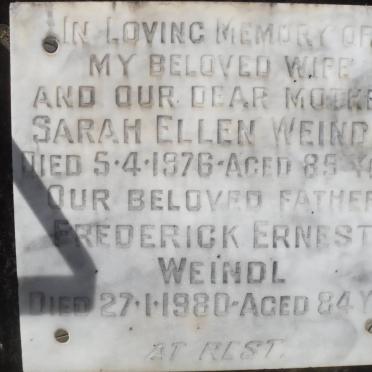 IN LOVING MEMORY OF
MY BELOVED WIFE
AND OUR DEAR MOTHE
SARAH ELLEN WEIND
DIED 5·4·1976·AGED 85 Y
OUR BELOVED FATHER
FREDERICK ERNEST
WEINDL
DIED 27·1·1980·AGED 84 Y
AT REST.